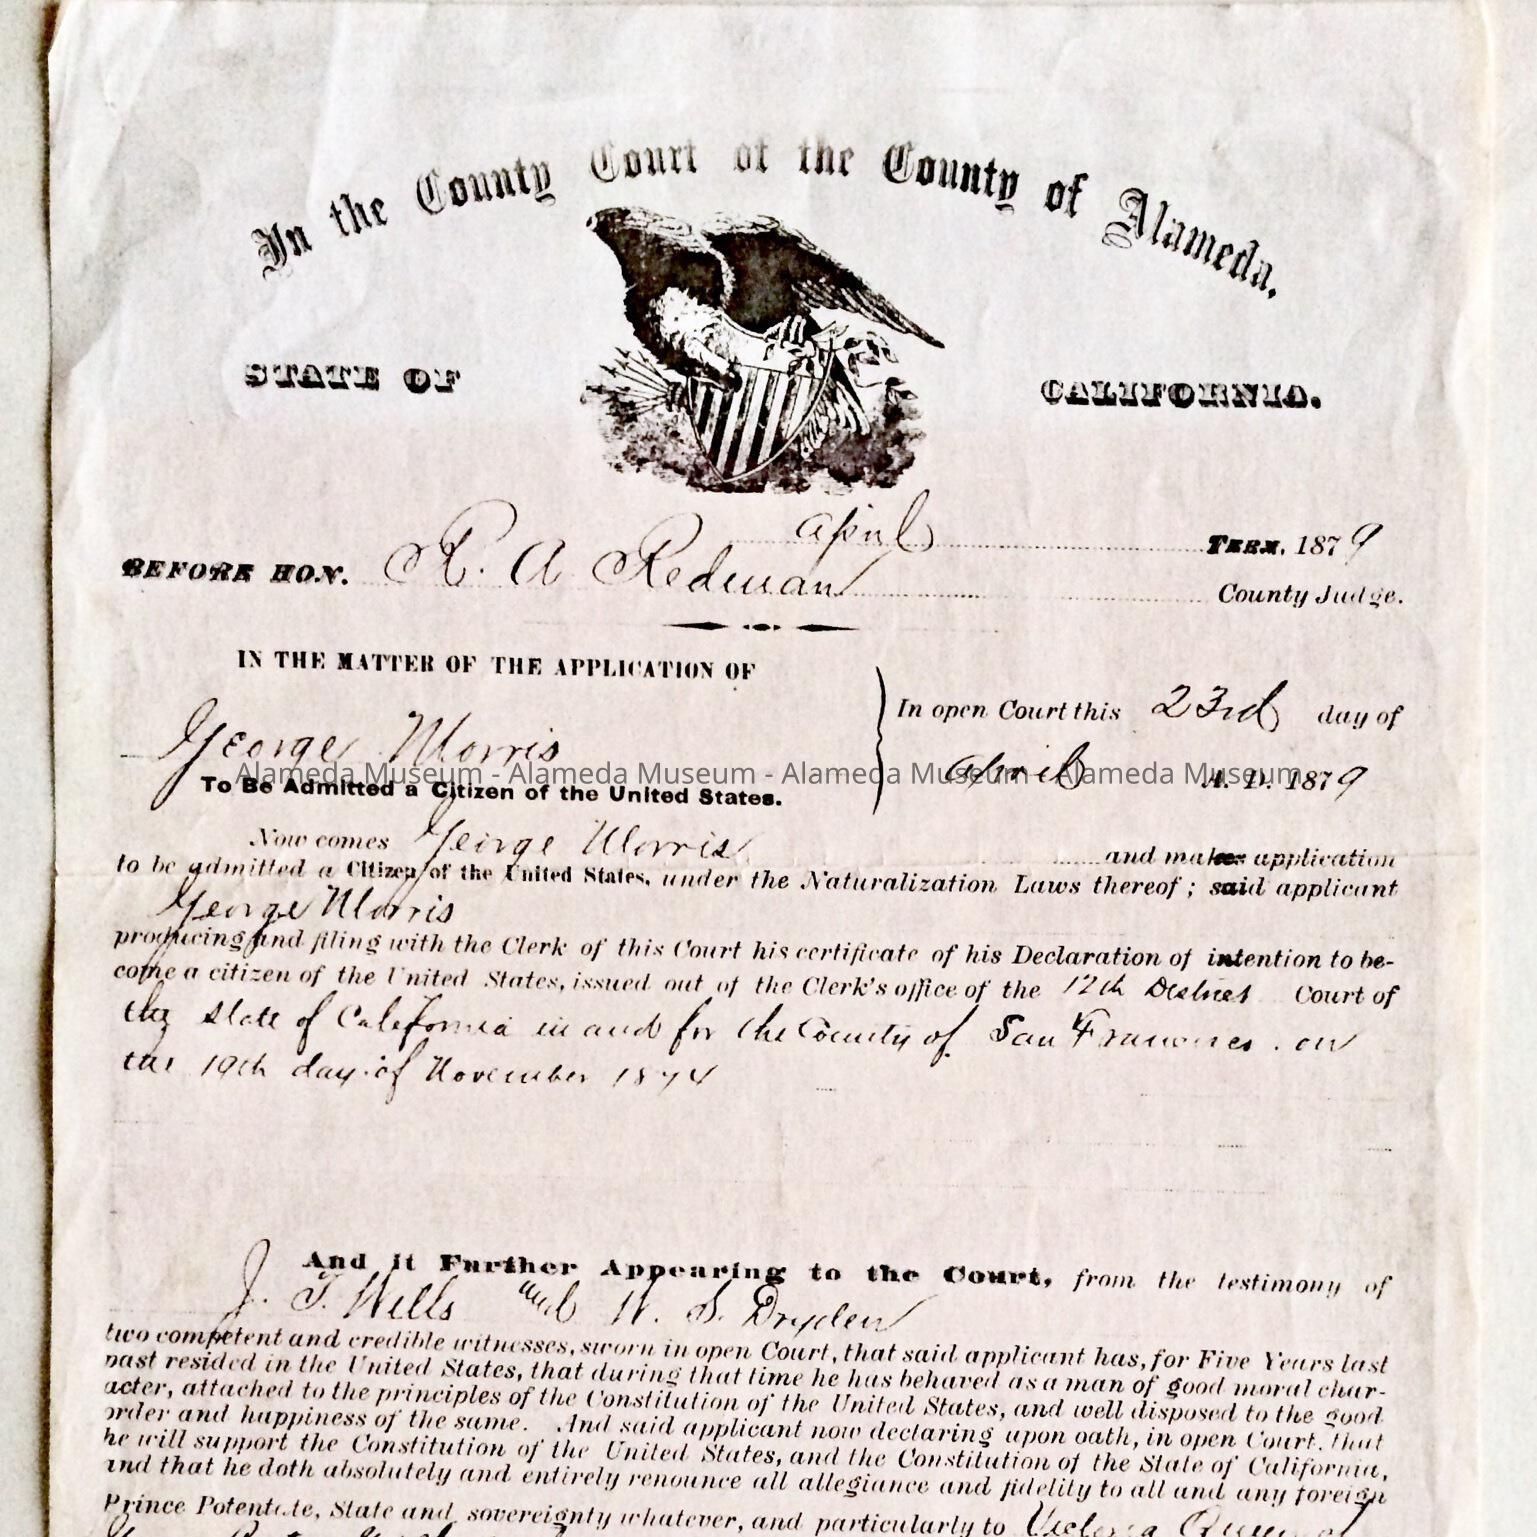 In the County Court of the County of Alameda.
STATE OF CALIFORNIA.
April TERM, 1879
BEFORE HON. R. A Redman County Judge.
IN THE MATTER OF THE APPLICATION OF
George Morris
To Be Admitted a Citizen of the United States.
In open Court this 23rd day of
April A. D. 1879
Alameda Museum - Alameda Museum - Alameda Museum - Alameda Museum
Now comes George Morris and makes application
to be admitted a Citizen of the United States, under the Naturalization Laws thereof; said applicant
George Morris
producing and filing with the Clerk of this Court his certificate of his Declaration of intention to be-
come a citizen of the United States, issued out of the Clerk's office of the 12th District Court of
the State of California in and for the County of San Francisco. on
the 19th day of November 1874
And it Further Appearing to the Court, from the testimony of
J. T. Wells and W. S. Dryden
two competent and credible witnesses, sworn in open Court, that said applicant has, for Five Years last
past resided in the United States, that during that time he has behaved as a man of good moral char-
acter, attached to the principles of the Constitution of the United States, and well disposed to the good
order and happiness of the same. And said applicant now declaring upon oath, in open Court, that
he will support the Constitution of the United States, and the Constitution of the State of California,
and that he doth absolutely and entirely renounce all allegiance and fidelity to all and any foreign
Prince Potentate, State and sovereignty whatever, and particularly to Victoria Queen of